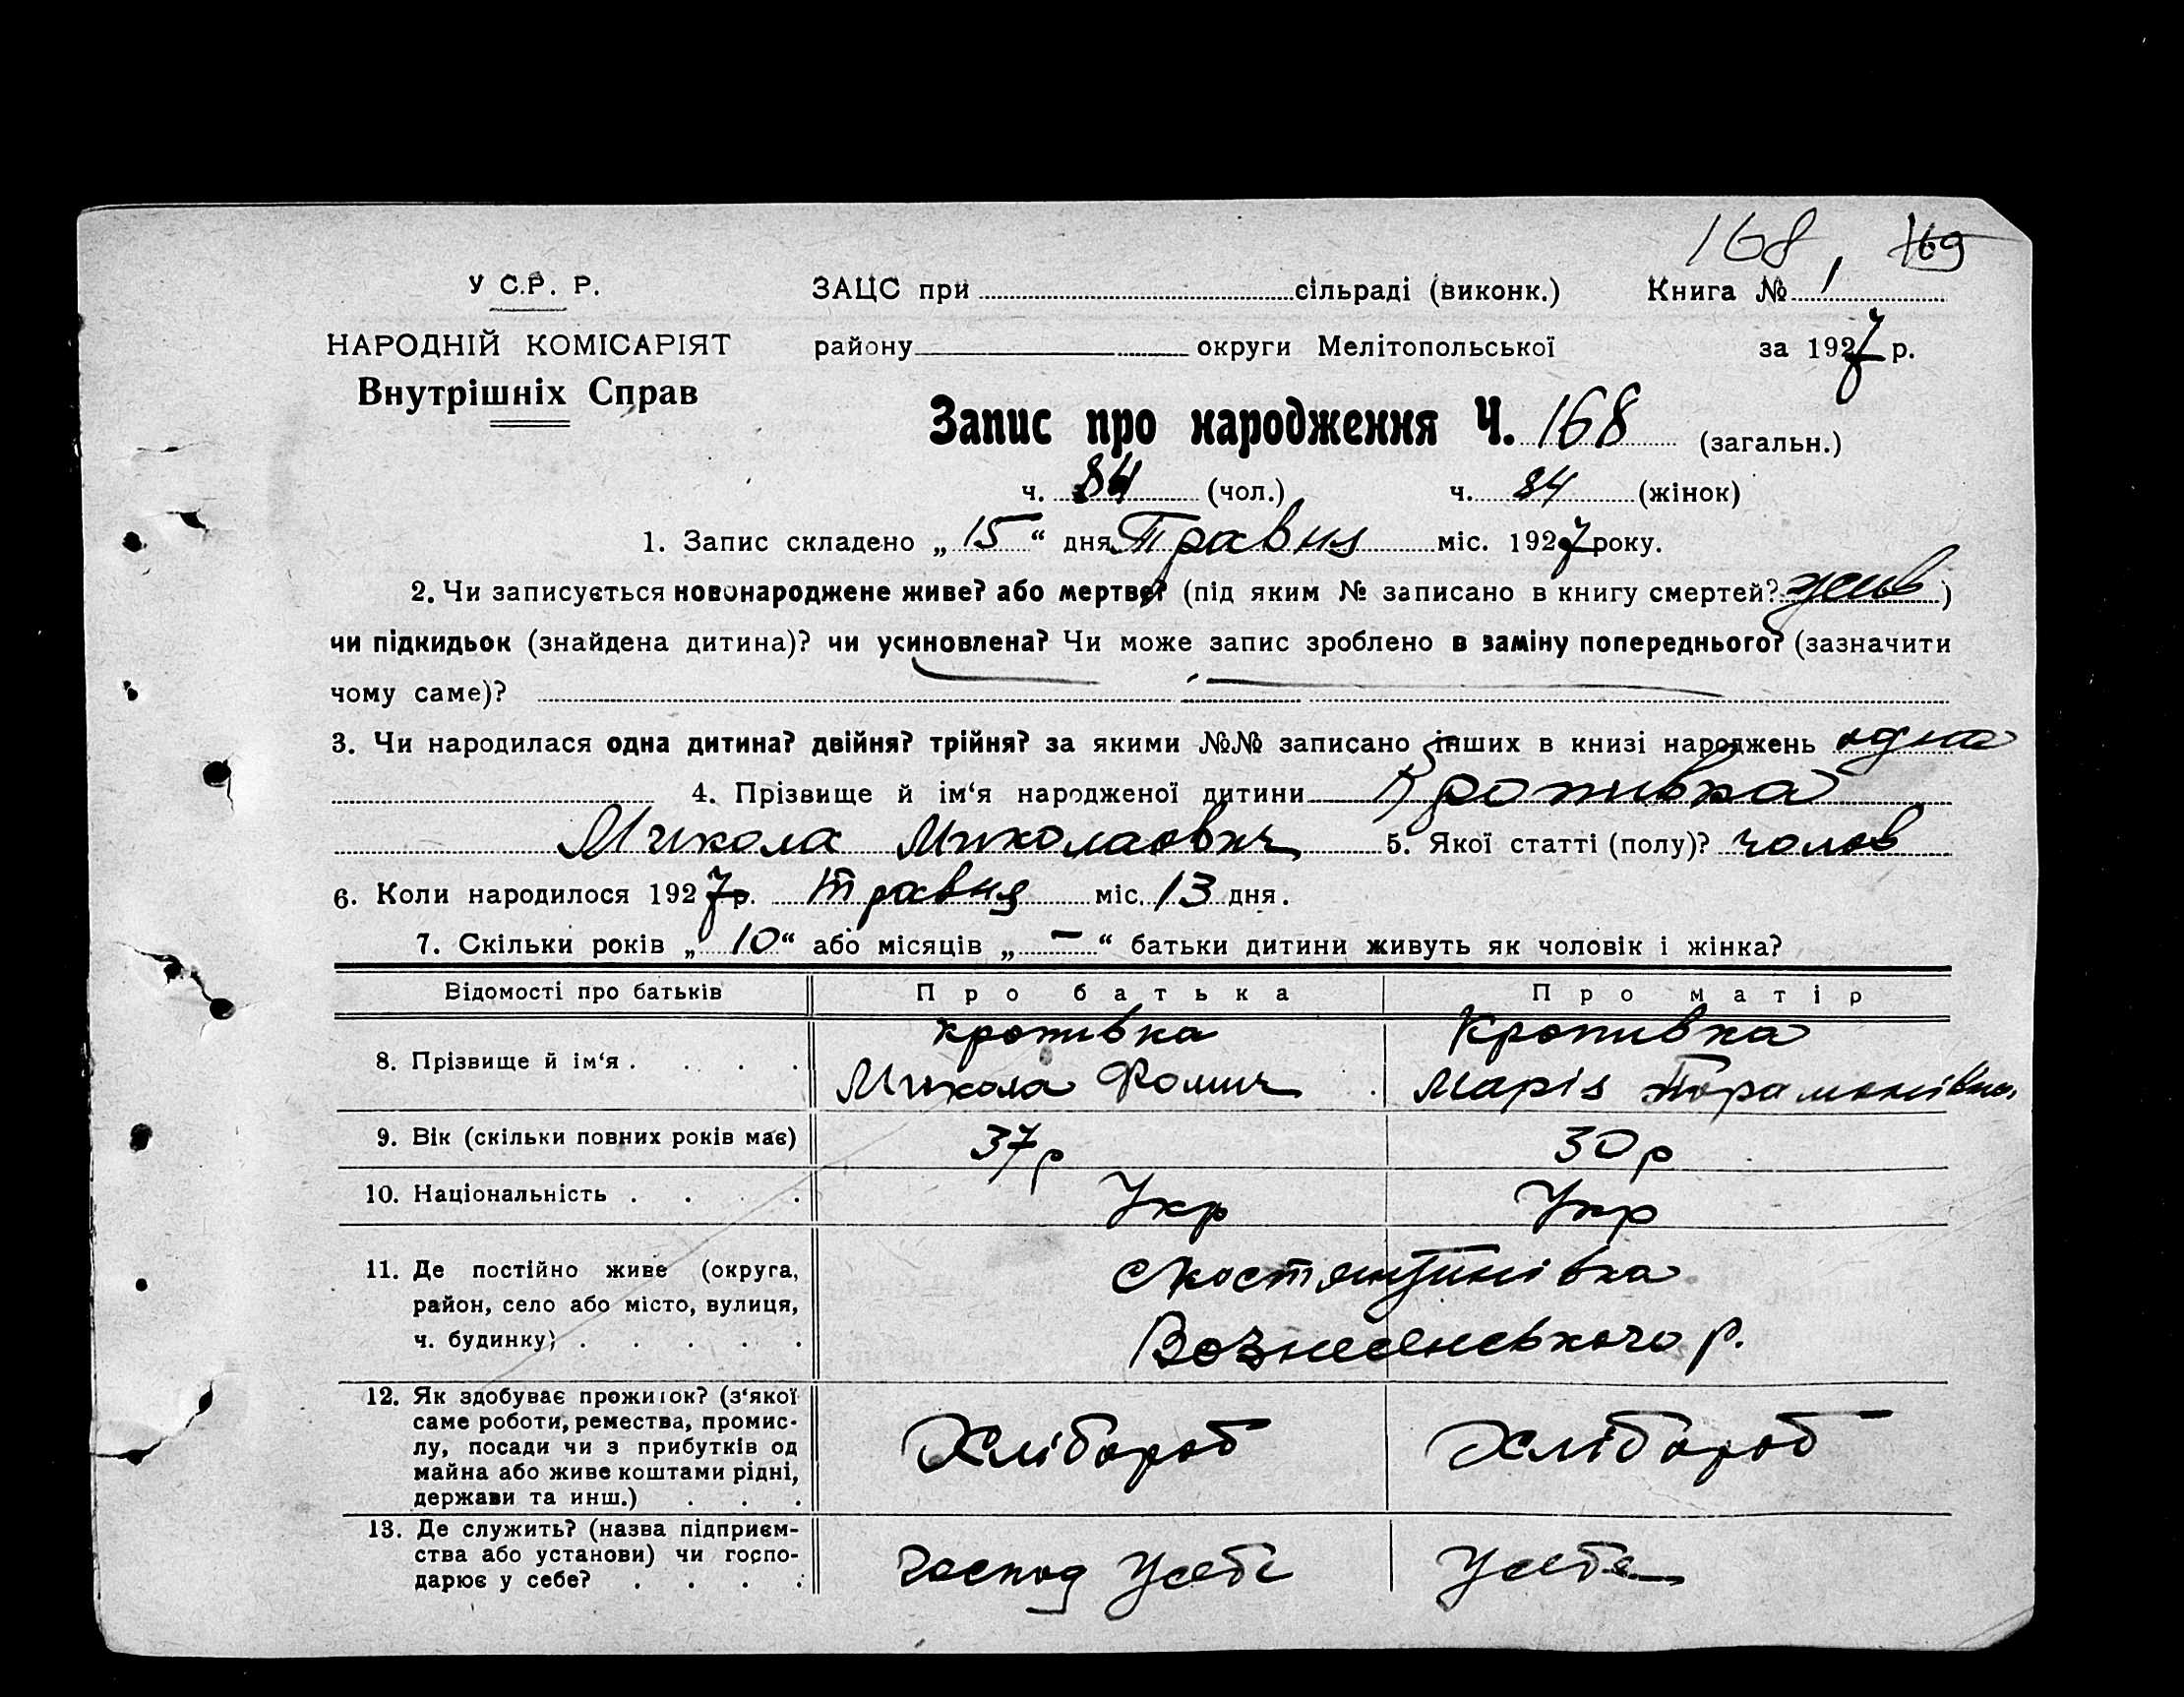 168, 169
У С.Р. Р.
ЗАЦС при сільраді (виконк.) Книга № 1
НАРОДНІЙ КОМІСАРІЯТ
району округи Мелітопольської за 1927 р.
Внутрішніх Справ
Запис про народження Ч. 168 (загальн.)
ч. 84 (чол.) ч. 84 (жінок)
1. Запис складено „ 15 “ дня Травня міс. 1927 року.
2. Чи записується новонароджене живе? або мертве? (під яким № записано в книгу смертей? жив )
чи підкидьок (знайдена дитина)? чи усиновлена? Чи може запис зроблено в заміну попереднього? (зазначити
чому саме)?
3. Чи народилася одна дитина? двійня? трійня? за якими №№ записано інших в книзі народжень одна
4. Прізвище й ім‘я народженої дитини Кропивка
Микола Миколаович 5. Якої статті (полу)? чолов
6. Коли народилося 1927 р. травня міс. 13 дня.
7. Скільки років „ 10 “ або місяців „ – “ батьки дитини живуть як чоловік і жінка?
Відомості про батьків Про батька Про матір
8. Прізвище й ім‘я . . . . кропивка Кропивка
Микола Фомич Марія Парамонівна
9. Вік (скільки повних років має) 37 р 30 р
10. Національність . . . . Укр Укр
11. Де постійно живе (округа,
район, село або місто, вулиця,
ч. будинку) . . . . .
с Костянтинівка
Вознесенського р.
12. Як здобуває прожиток? (з‘якої
саме роботи, ремества, промис-
лу, посади чи з прибутків од
майна або живе коштами рідні,
держави та инш.) . . .
Хлібороб Хлібороб
13. Де служить? (назва підприєм-
ства або установи) чи госпо-
дарює у себе? . . . .
господ у себе у себе